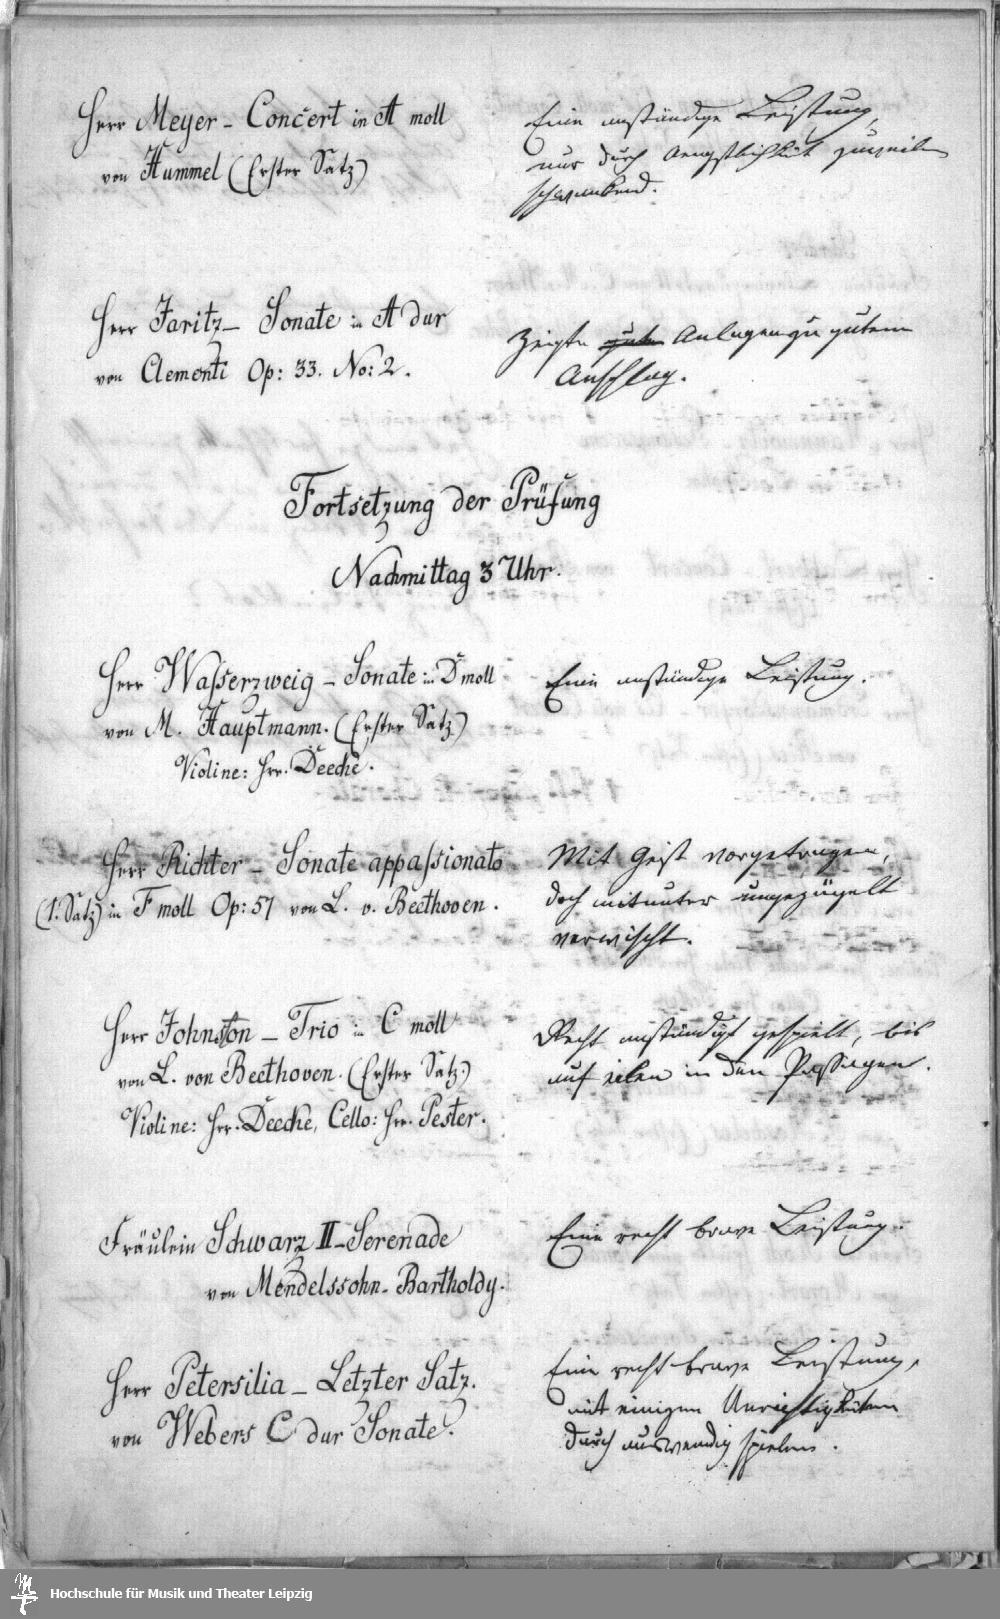 Herr Meyer - Concert in A moll
von Hummel (Erster Satz)
Eine anständige Leistung,
nur durch Aengstlichkeit zuweilen
schwankend.
Herr Jaritz - Sonate in A dur
von Clementi Op: 33. No: 2.
Zeigte gute Anlagen zu gutem
Anschlag.
Fortsetzung der Prüfung
Nachmittag 3 Uhr.
Herr Wasserzweig - Sonate in D moll
von M. Hauptmann. (Erster Satz)
Violine: Hrr. Deecke.
Eine anständige Leistung.
Herr Richter - Sonate appassionato
(1. Satz) in F moll Op: 57 von L. v. Beethoven.
Mit Geist vorgetragen,
doch mitunter ungezügelt
verwischt.
Herr Johnston - Trio in C moll
von L. von Beethoven. (Erster Satz.)
Violine: Hrr. Deecke, Cello: Hrr. Pester.
Recht anständigt gespielt, bis
auf eilen in den Passagen.
Fräulein Schwarz II - Serenade
von Mendelssohn-Bartholdy.
Eine recht brave Leistung.
Herr Petersilia - Letzter Satz.
von Webers C dur Sonate.
Eine recht brave Leistung,
mit einigen Unrichtigkeiten
durch auswendig spielen.
Hochschule für Musik und Theater Leipzig